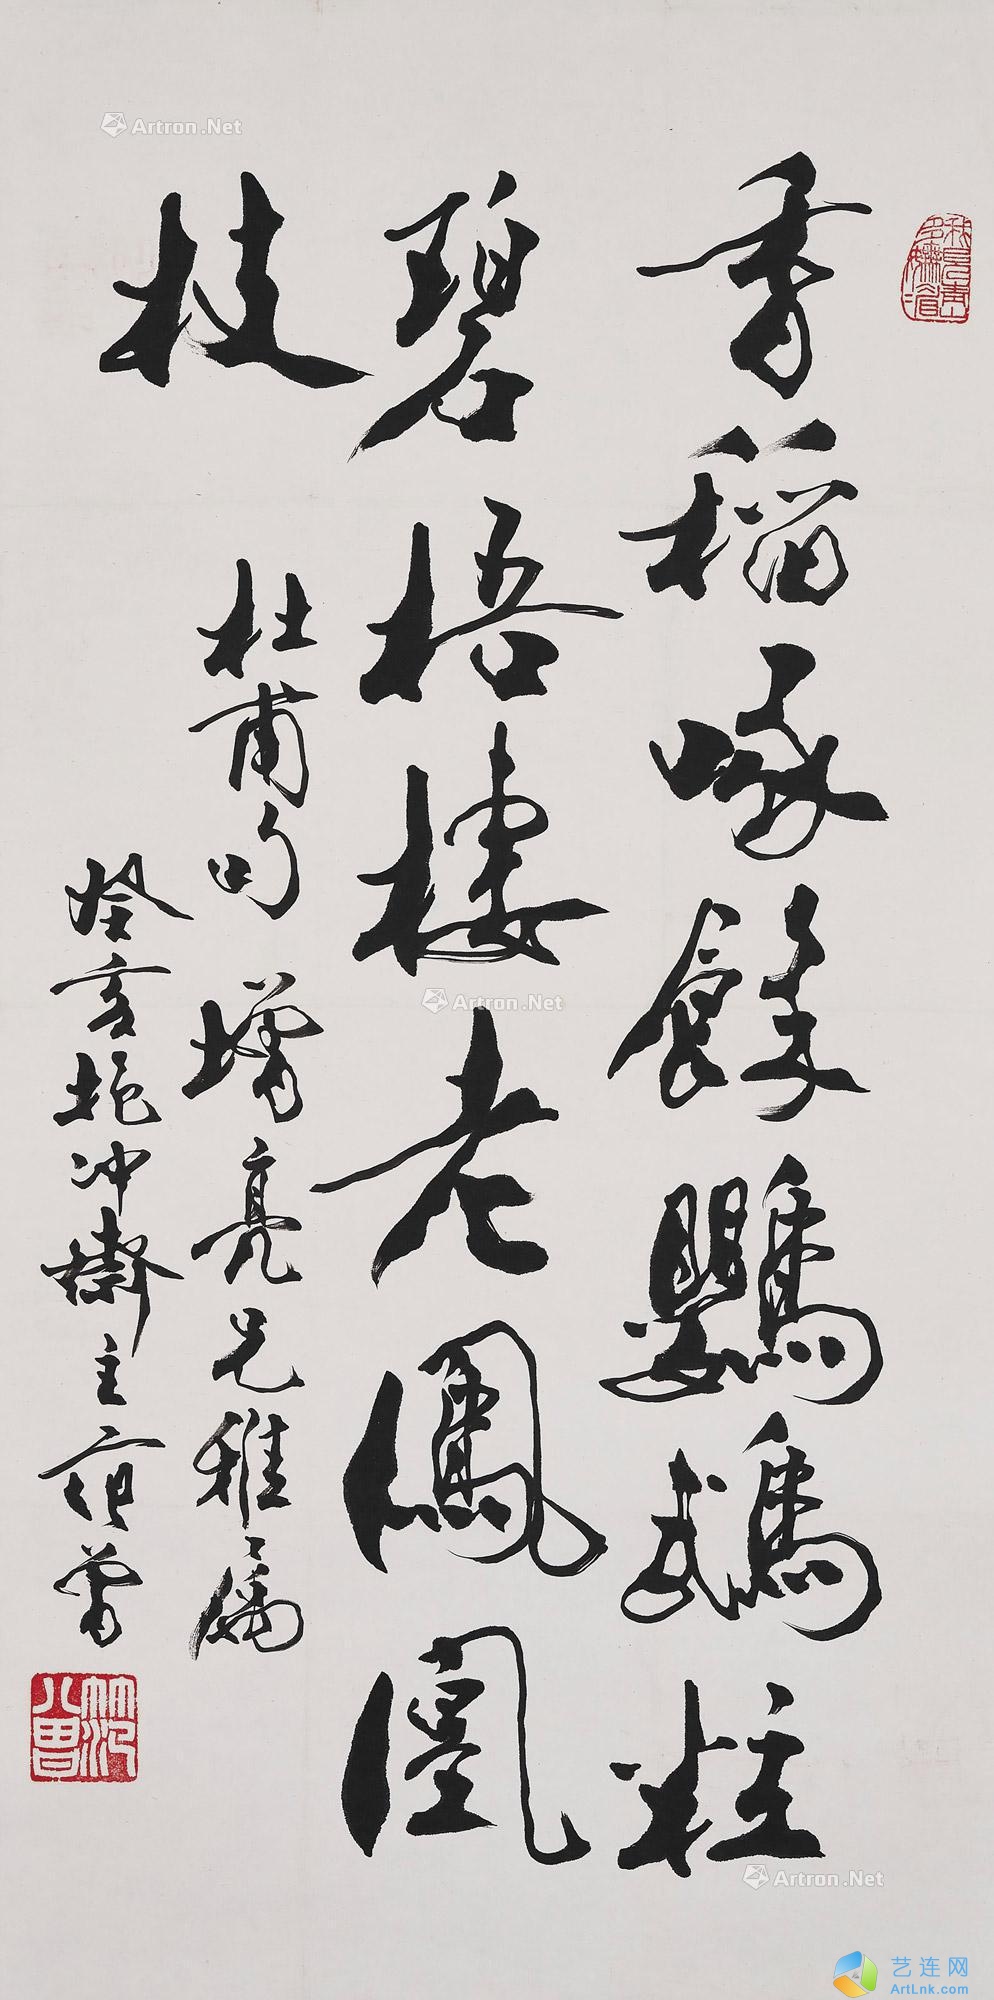 香稻啄餘鸚鵡粒
碧梧棲老鳳凰
枝
杜甫句 增亮兄雅屬
癸亥抱冲齋主范曾
Artron.Net
Artron.Net
Artron.Net
艺连网
ArtLnk.com